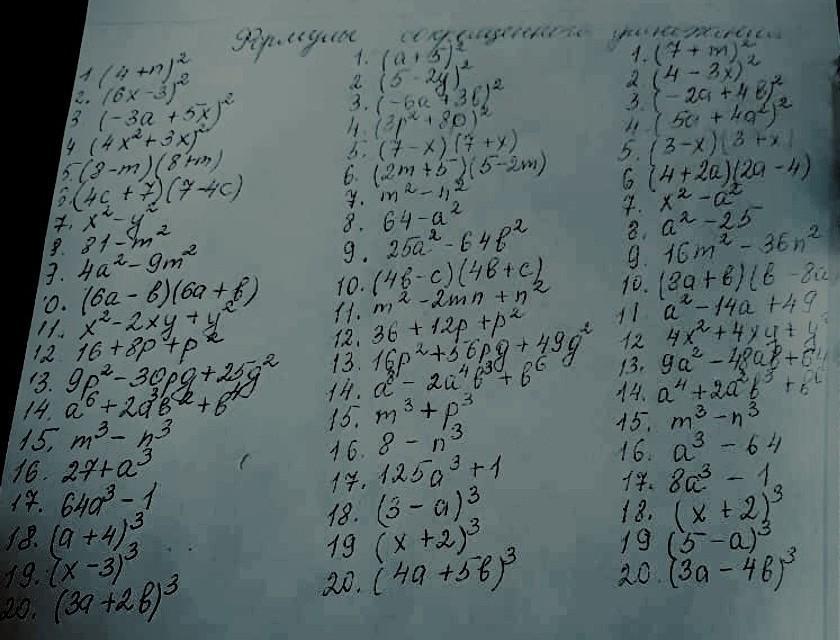 Формулы сокращенного умножения
1 (4+n)²
2. (6x-3)²
3 (-3a+5x)²
4 (4x²+3x)²
5. (8-m)(8+m)
6. (4c+7)(7-4c)
7. x²-y²
8. 81-m²
9. 4a²-9m²
10. (6a-b)(6a+b)
11. x²-2xy+y²
12. 16+8p+p²
13. 9p²-30pg+25g²
14. a⁶+2a³b²+b⁴
15. m³-n³
16. 27+a³
17. 64a³-1
18. (a+4)³
19. (x-3)³
20. (3a+2b)³
1. (a+5)²
2 (5-2y)²
3. (-6a+3b)²
4. (3p²+8p)²
5. (7-x)(7+x)
6. (2m+5)(5-2m)
7. m²-n²
8. 64-a²
9. 25a²-64b²
10. (4b-c)(4b+c)
11. m²-2mn+n²
12. 36+12p+p²
13. 16p²+56pg+49g²
14. a⁸-2a⁴b³+b⁶
15. m³+p³
16. 8-n³
17. 125a³+1
18. (3-a)³
19 (x+2)³
20. (4a+5b)³
1. (7+m)²
2 (4-3x)²
3. (-2a+4b)²
4. (5a+4a²)²
5. (3-x)(3+x)
6 (4+2a)(2a-4)
7. x²-a²
8. a²-25
9. 16m²-36n²
10. (8a+b)(b-8a
11 a²-14a+49
12 4x²+4xy+y
13. 9a²-48ab+64
14. a⁴+2a²b³+b⁶
15. m³-n³
16. a³-64
17. 8a³-1
18. (x+2)³
19 (5-a)³
20. (3a-4b)³